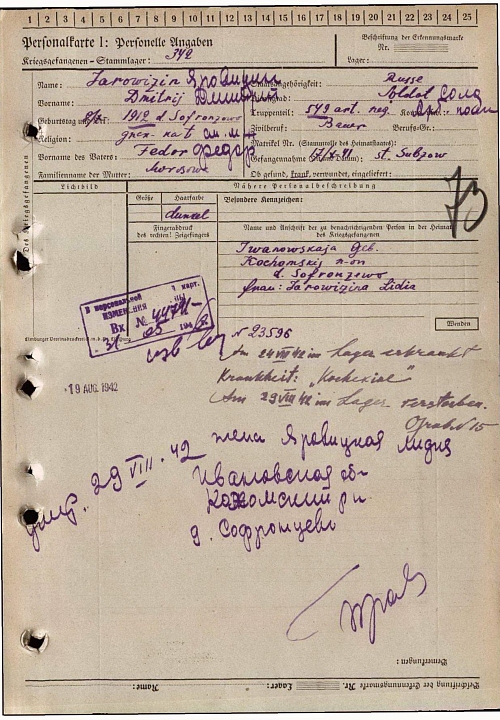 1 2 3 4 5 6 7 8 9 10 11 12 13 14 15 16 17 18 19 20 21 22 23 24 25
Personalkarte I: Personelle Angaben
Kriegsgefangenen-Stammlager: 342
Beschriftung der Erkennungsmarke
Nr.
Lager:
Des Kriegsgefangenen
Name: Jarowizin Яровицин
Vorname: Dmitrij Дмитрий
Geburtstag und 1912 d. Sofronzewo
Religion:
Vorname des Vaters: Fedor Федор
Familienname der Mutter: Morosow
Staatsangehörigkeit: Russe
Soldat
Truppenteil: 549 art. reg.
Zivilberuf: Bauer Berufs-Gr.:
Matrikel Nr. (Stammrolle des Heimatstaates):
Gefangennahme 17.X.41 st. Subzow
Ob gesund, krank, verwundet, eingeliefert:
Lichtbild
Nähere Personalbeschreibung
Größe
Haarfarbe
Besondere Kennzeichen:
dunkel
Fingerabdruck
des rechten! Zeigefingers
Name und Anschrift der zu benachrichtigenden Person in der Heimat
des Kriegsgefangenen
73
Iwanowskaja Geb.
Kochomskij r-on
d. Sofronzewo
frau: Jarowizina Lidia
Wenden
В персональной карт.
ИЗМЕНЕНИЯ
Вх №
194
N 23596
Am 24 VIII 42 im Lager erkrankt
Krankheit: „Kachexie"
19 AUG. 1942
Am 29 VIII 42 im Lager verstorben.
Grab N 15
умер. 29 VIII. 42 жена Яровицкая Лидия
Ивановская об-
Кохомский р-н
д. Софронцево
Bemerkungen:
Beschriftung der Erkennungsmarke Nr. Lager: Name: